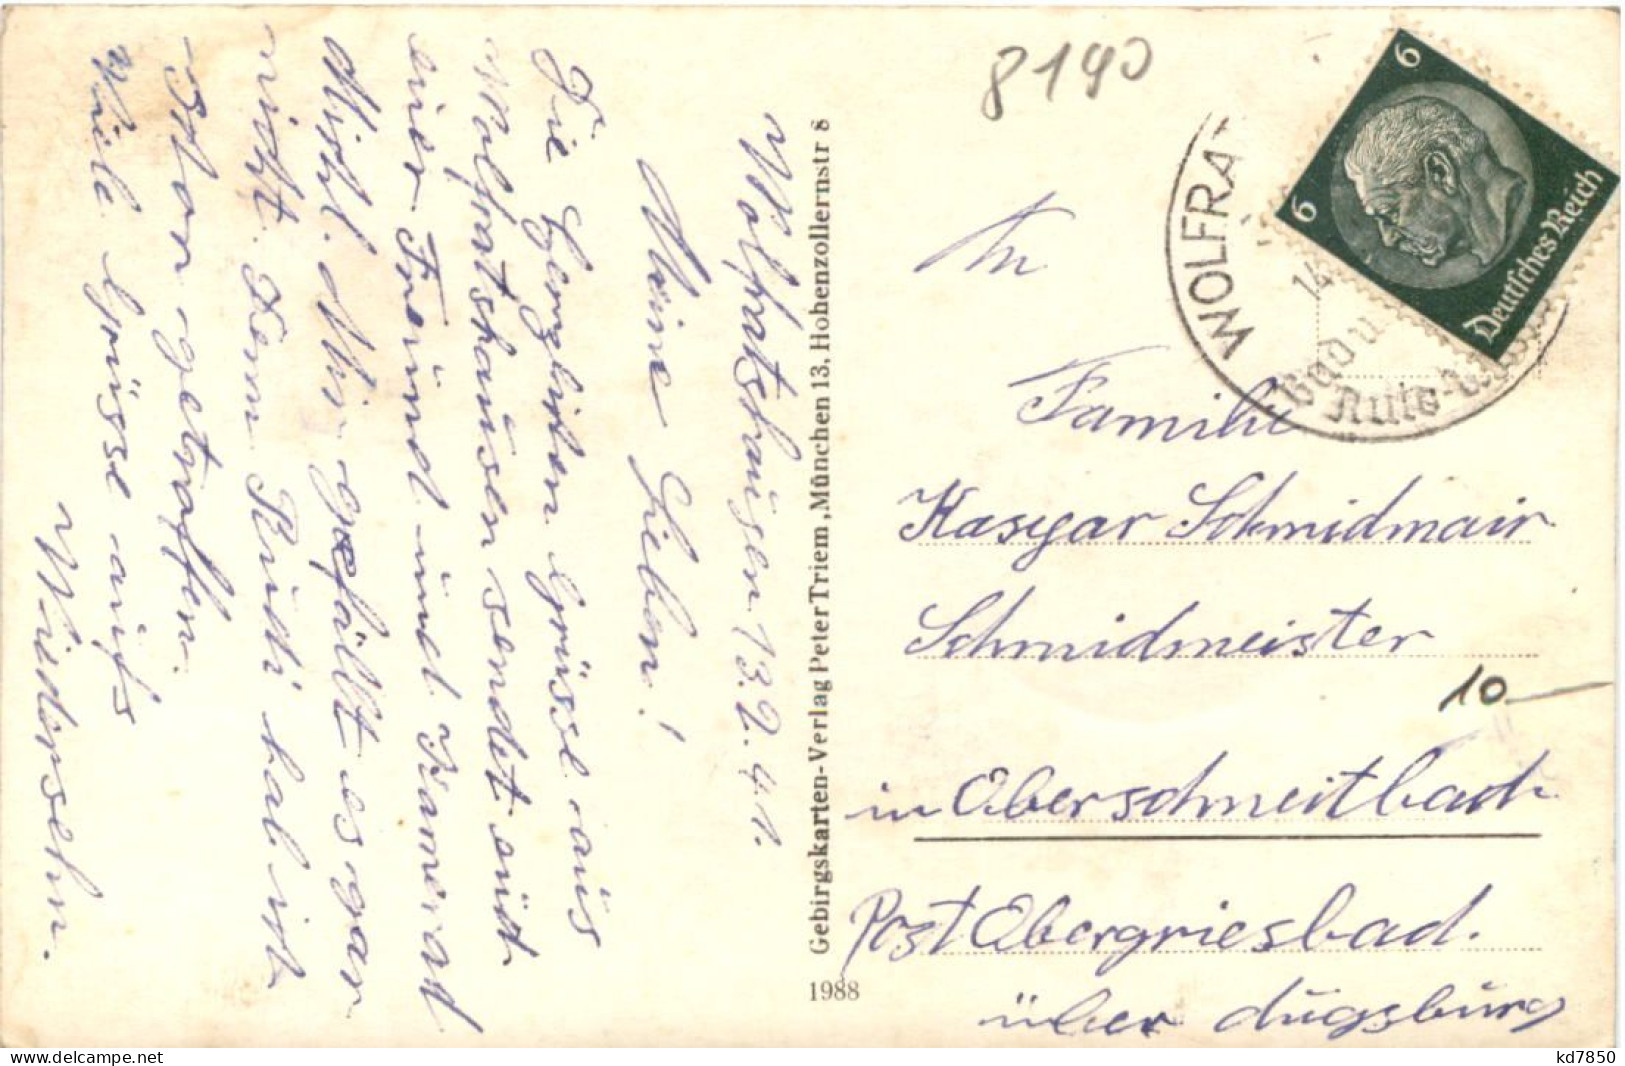 Wolfratshausen 13.2.41.
Meine Lieben!
Die Herzlichen Grüsse aus
Wolfratshausen sendet eüch
eüer Freund ünd Kamerad
Michl. Mir gefällt es gar
nicht. Denn Rudi hab ich
schon getroffen.
Viele Grüsse aüfs
Wiedersehn.
Gebirgskarten-Verlag Peter Triem, München 13, Hohenzollernstr 8
1988
8190
6
6
Deutsches Reich
WOLFRA
14
Bad u
Auto-
An
Familie
Kaspar Schmidmair
Schmidmeister
10
in Oberschneitbach
Post Obergriesbach.
über Augsbürg
kd7850
www.delcampe.net